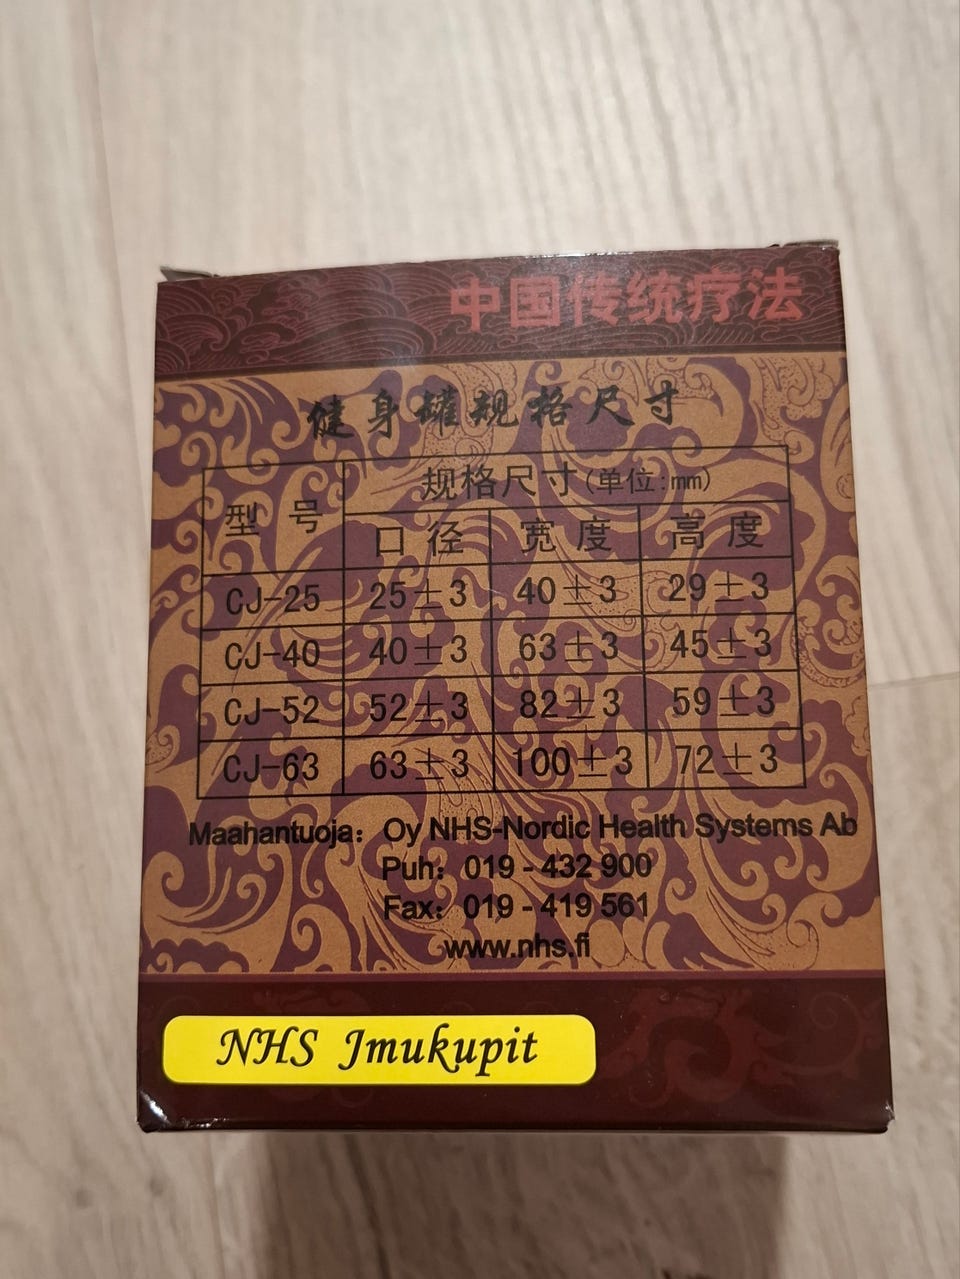 中国传统疗法
健身罐规格尺寸
型号 规格尺寸(单位:mm)
口径 宽度 高度
CJ-25 25±3 40±3 29±3
CJ-40 40±3 63±3 45±3
CJ-52 52±3 82±3 59±3
CJ-63 63±3 100±3 72±3
Maahantuoja: Oy NHS-Nordic Health Systems Ab
Puh: 019 - 432 900
Fax: 019 - 419 561
www.nhs.fi
NHS Imukupit